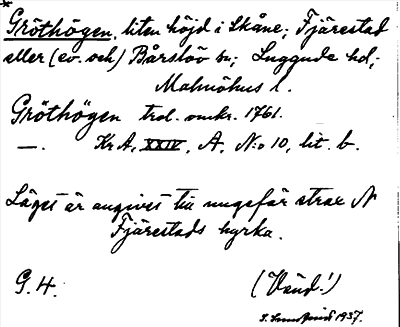 *
Gröthögen, liten höjd i Skåne; Fjärestad
eller (ev. och) Bårslöv sn; Luggude hd;
Malmöhus l.
Gröthögen trol. omkr. 1761.
—. KrA, XXIV, A, N:o 10, lit. b.
Läget är angivet till ungefär strax N
Fjärestads kyrka.
G. H. (Vänd!)
1937.